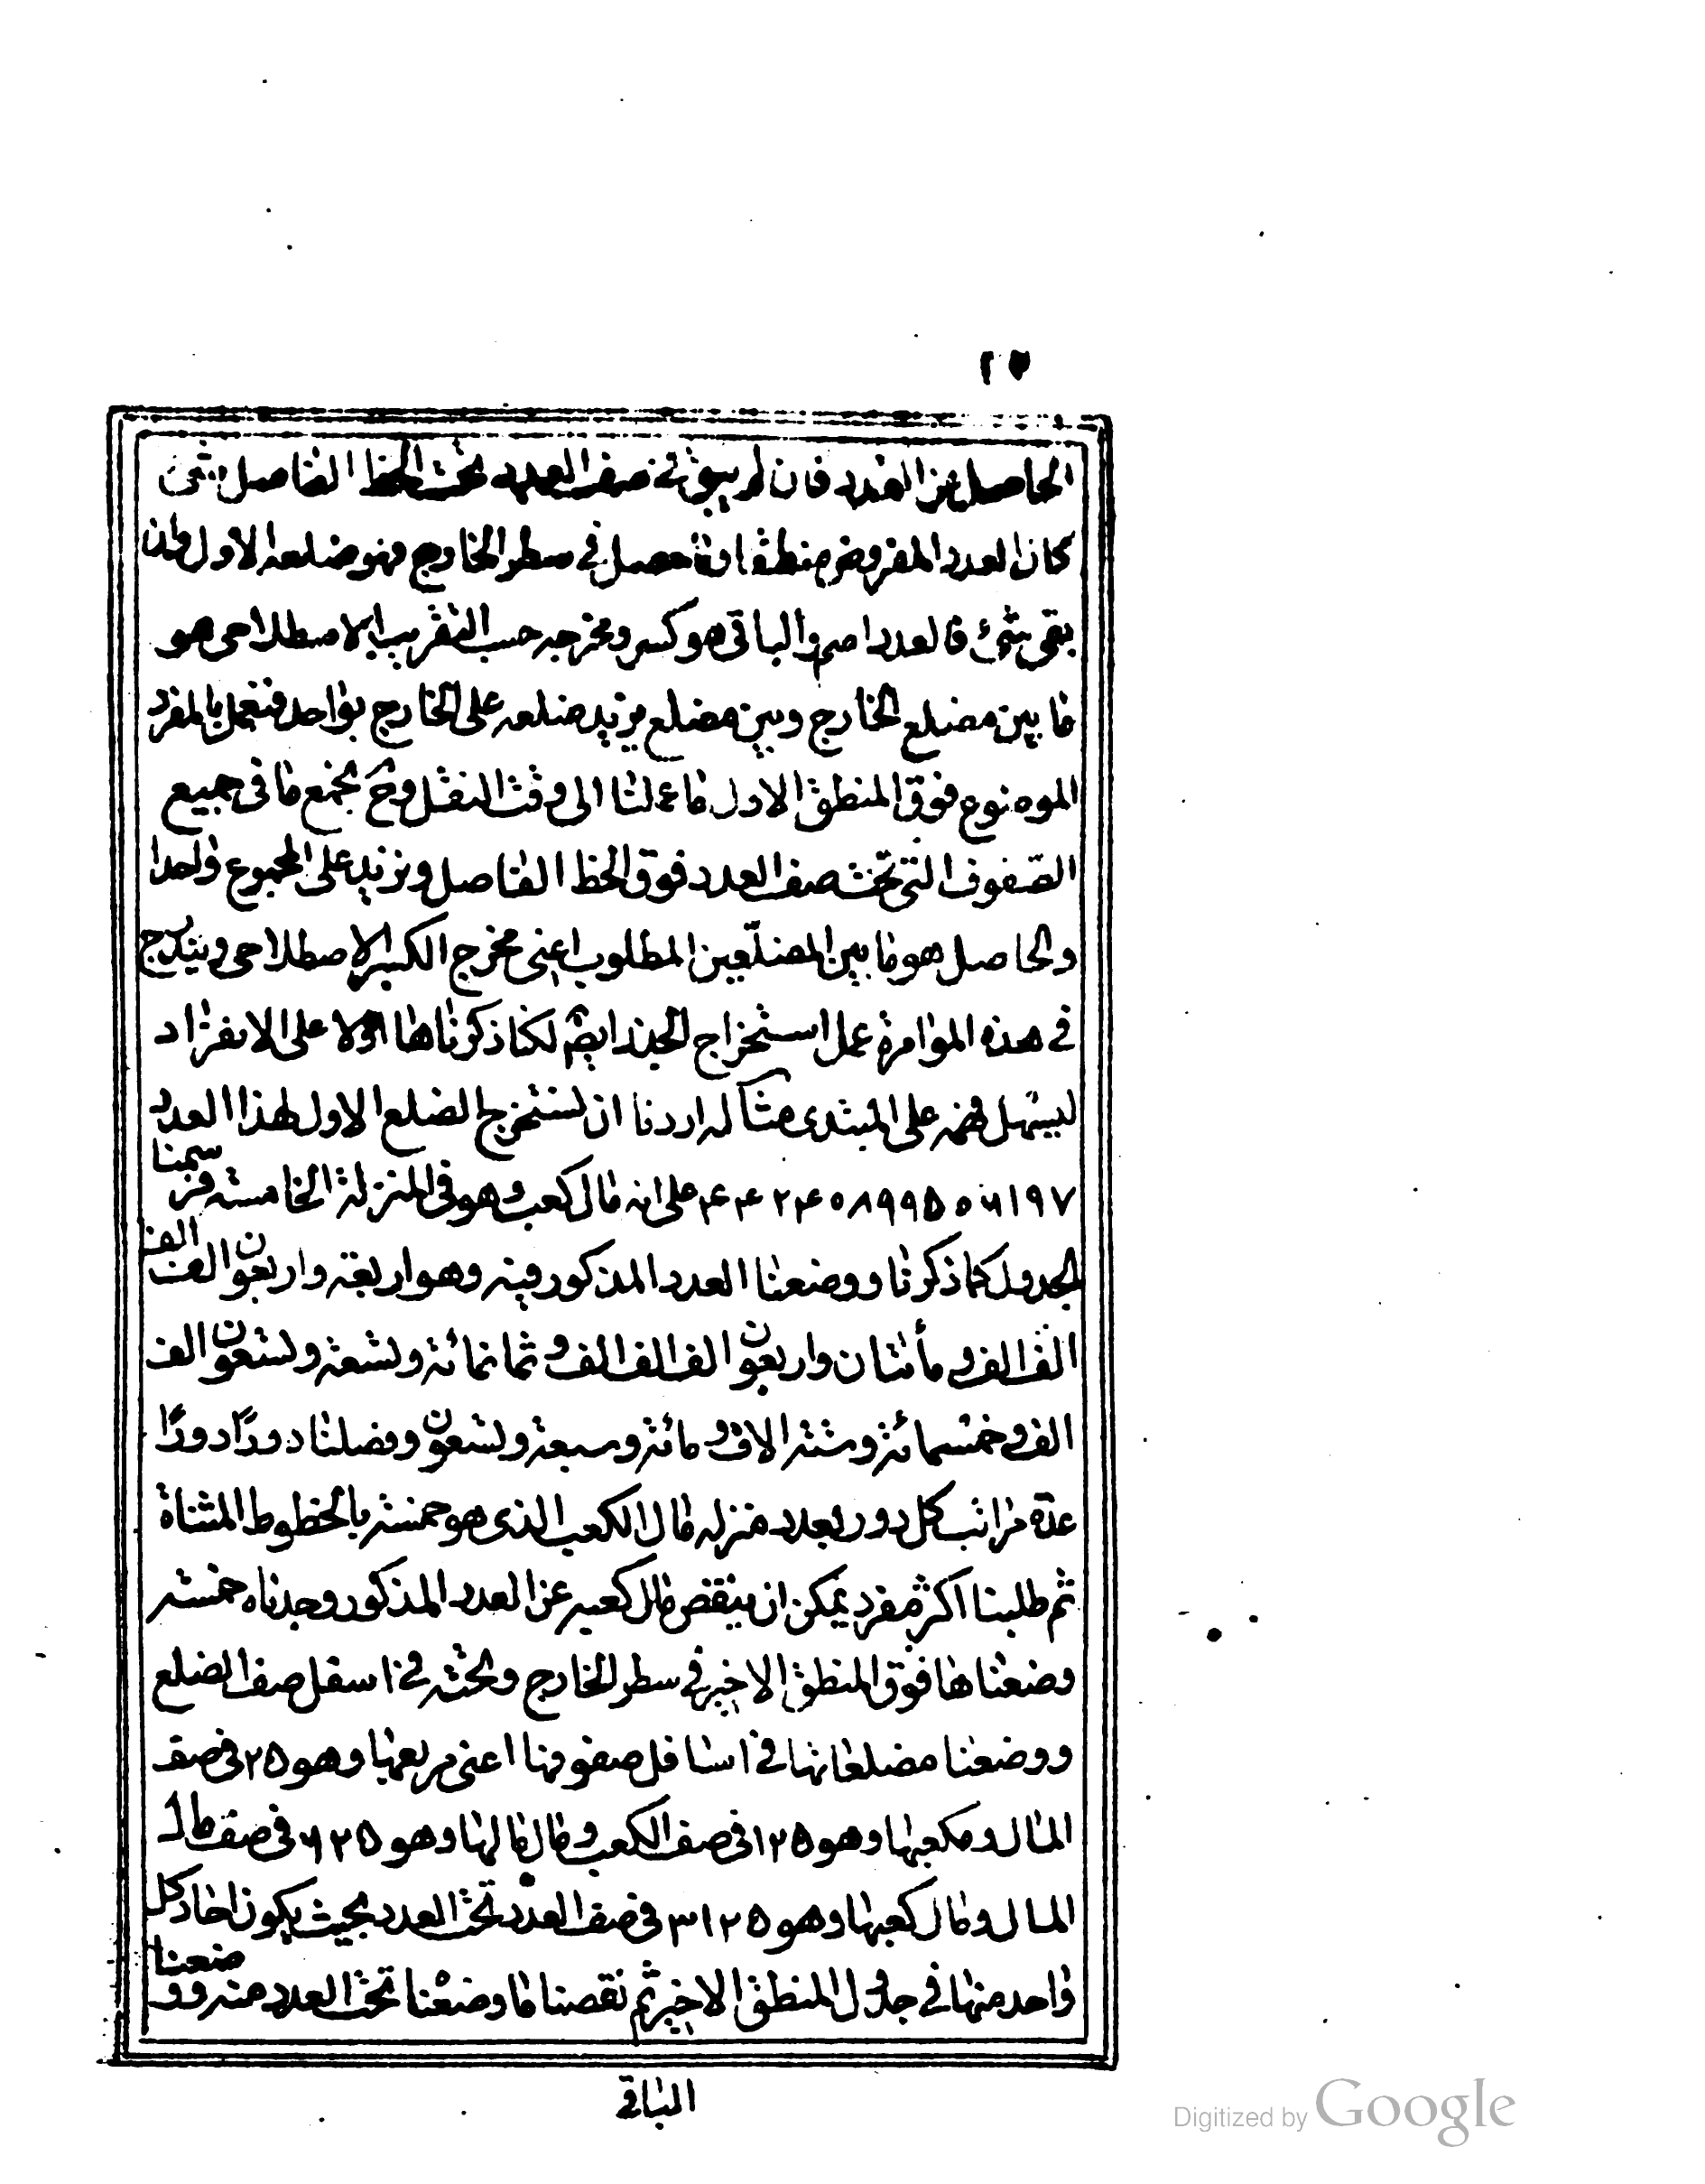 ٢٥
الحاصل من العدد فان لم يبق فى صف العدد تحت الخط الفاصل شئ
كان العدد المفروض منطقا وما حصل فى سطر الخارج فهو ضلعه الاول وان
بقى شئ فالعدد اصم والباقى هو كسر ومخرجه حسب التقريب الاصطلاحى هو
ما بين مضلع الخارج وبين مضلع يزيد ضلعه على الخارج بواحد فنعمل بالمفرد
الموضوع فوق المنطق الاول ما عملنا الى وقت النقل وح نجمع ما فى جميع
الصفوف التى تحت صف العدد فوق الخط الفاصل ونزيد على المجموع واحدا
والحاصل هو ما بين المضلعين المطلوب اعنى مخرج الكسر الاصطلاحى ويندرج
فى هذه الموامرة عمل استخراج الجذر ايضا لكنا ذكرناها اولا على الانفراد
ليسهل فهمه على المبتدى مثاله اردنا ان نستخرج الضلع الاول لهذا العدد
٤٤٢٤٠٨٩٩٥٠٦١٩٧ على انه مال كعب وهو فى المنزلة الخامسة فرسمنا
الجدول كما ذكرنا ووضعنا العدد المذكور فيه وهو اربعة واربعون الف الف
الف الف ومأتان واربعون الف الف الف وثمانمائة وتسعة وتسعون الف
الف وخمسمائة وستة الاف ومائة وسبعة وتسعون وفصلنا دورًا دورًا
عدة مراتب كل دور بعدد منزله مال الكعب الذى هو خمسة بالخطوط المثناة
ثم طلبنا اكثر مفرد يمكن ان ينقص مال كعبه عن العدد المذكور وجدناه خمسة
وضعناها فوق المنطق الاخير فى سطر الخارج وتحته فى اسفل صف الضلع
ووضعنا مضلعاتها فى اسافل صفوفها اعنى مربعها وهو ٢٥ فى صف
المال ومكعبها وهو ١٢٥ فى صف الكعب ومال مالها وهو ٦٢٥ فى صف مال
المال ومال كعبها وهو ٣١٢٥ فى صف العدد تحت العدد بحيث يكون احاد كل
واحد منها فى جدول المنطق الاخير ثم نقصنا ما وضعنا تحت العدد منه ووضعنا
الباقى
Digitized by Google